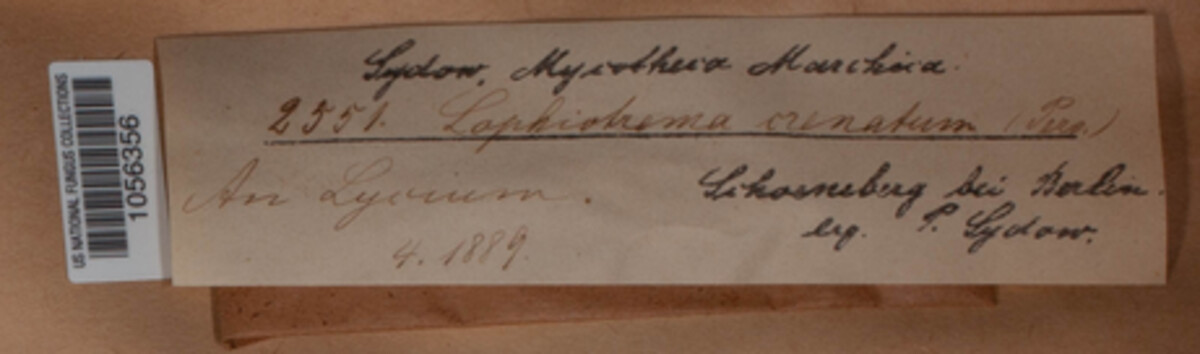 US NATIONAL FUNGUS COLLECTIONS
1056356
Sydow, Mycotheca Marchica.
2551. Lophiotrema crenatum (Pers.)
An Lycium.
4. 1889.
Schoeneberg bei Berlin.
leg. P. Sydow.